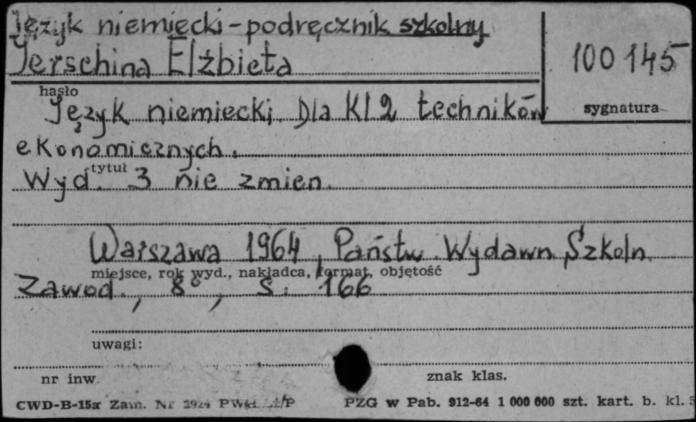 Język niemiecki - podręcznik szkolny
Jerschina Elżbieta
100 145
hasło
sygnatura
Język niemiecki. Dla Kl 2 techników
ekonomicznych.
tytuł
Wyd. 3 nie zmien.
Warszawa 1964, Państw. Wydawn. Szkoln.
miejsce, rok wyd., nakładca, format, objętość
Zawod., 8°, s. 166
uwagi:
nr inw.
znak klas.
CWD-B-15a Zam. Nr 2924
PZG w Pab. 912-64 1 000 000 szt. kart. b. kl. 5